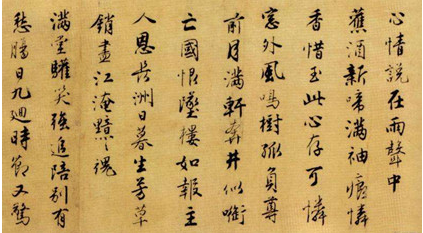 心情說在雨聲中
舊酒新啼滿袖痕憐
香惜玉此心存可憐
窓外風鳴樹孤負尊
前月滿軒奔井似啣
亡國恨墜樓如報主
人恩長洲日暮生芳草
銷盡江淹黯々魂
滿堂笑強追陪別有
愁腸日九迴時節又驚